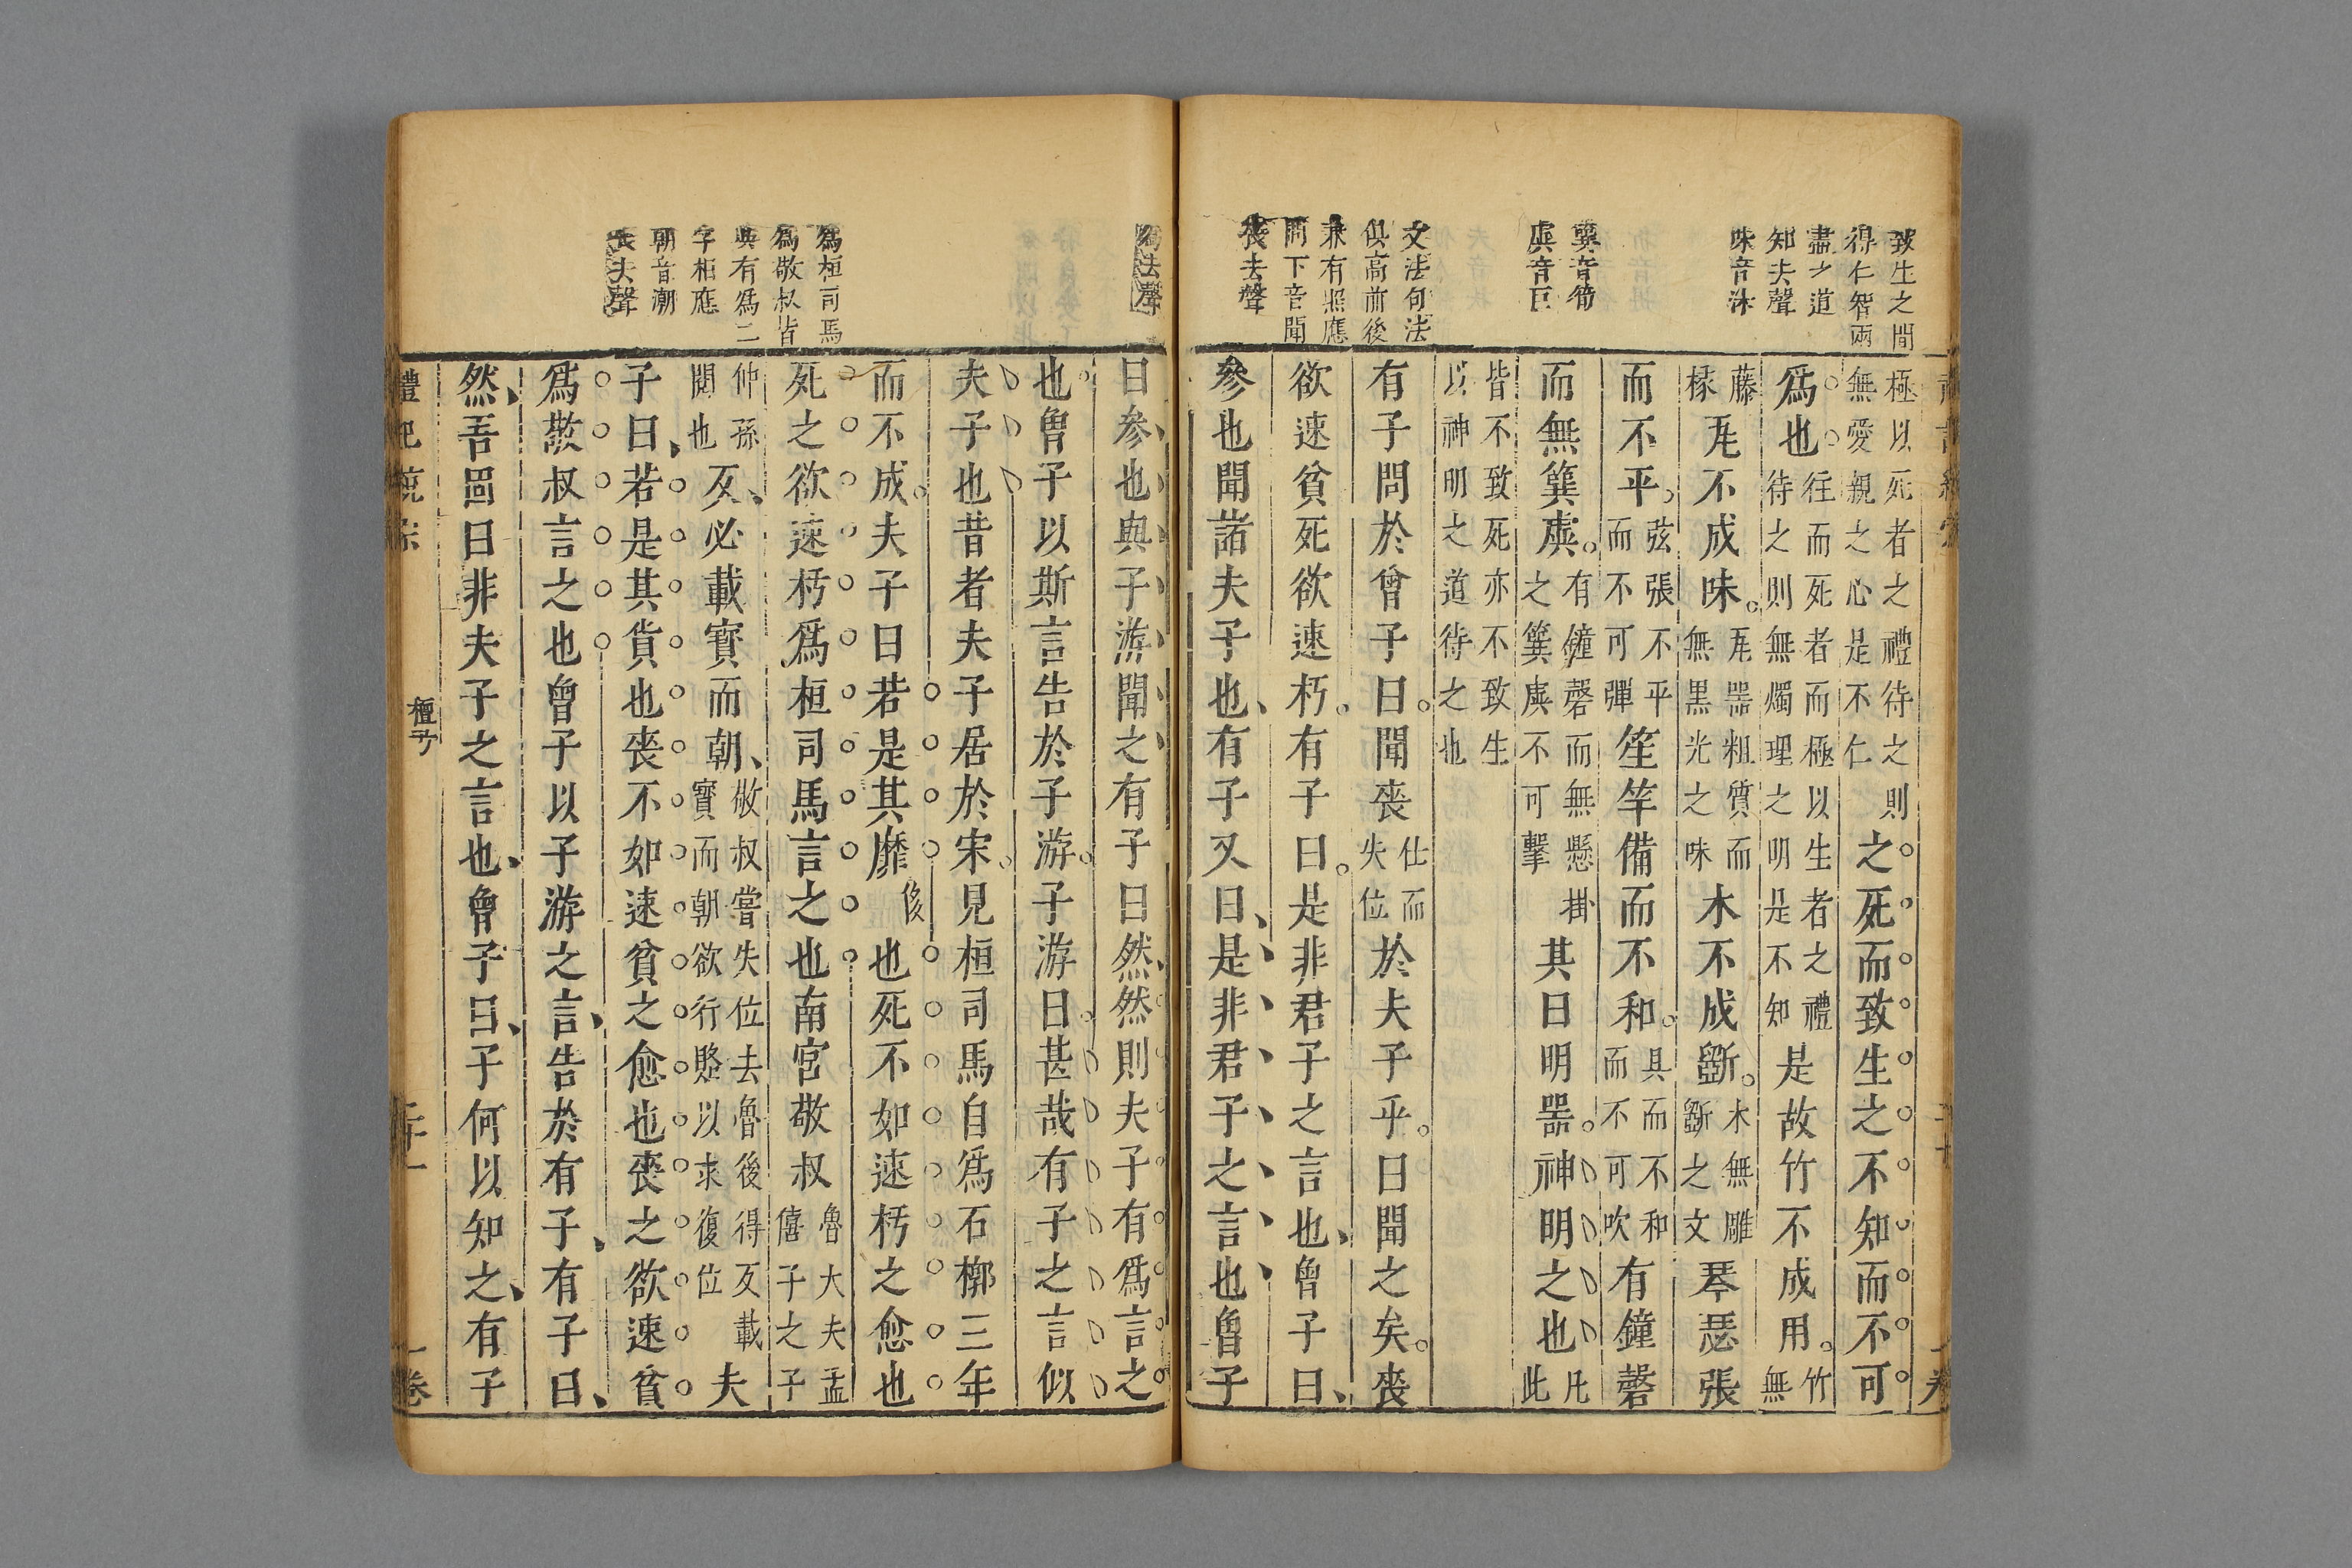 致生之間
得仁智兩
盡之道
知去聲
味音沬
簨音筍
虡音巨
文法句法
俱高前後
兼有照應
問下音聞
喪去聲
極以死者之禮待之則
無愛親之心是不仁
之死而致生之不知而不可
爲也
往而死者而極以生者之禮
待之則無燭理之明是不知
是故竹不成用
竹
無
籐
椽
瓦不成味
瓦器粗質而
無黑光之味
木不成斲
木無雕
斲之文
琴瑟張
而不平
弦張不平
而不可彈
笙竽備而不和
具而不和
而不可吹
有鐘磬
而無簨虡
有鐘磬而無懸掛
之簨虡不可擊
其曰明器神明之也
凡
此
皆不致死亦不致生
以神明之道待之也
有子問於曾子曰聞喪
仕而
失位
於夫子乎曰聞之矣喪
欲速貧死欲速朽有子曰是非君子之言也曾子曰
參也聞諸夫子也有子又曰是非君子之言也曾子
爲桓司馬
爲敬叔皆
與有爲二
字相應
朝音潮
喪去聲
曰參也與子游聞之有子曰然然則夫子有爲言之
也曾子以斯言告於子游子游曰甚哉有子之言似
夫子也昔者夫子居於宋見桓司馬自爲石槨三年
而不成夫子曰若是其靡
侈
也死不如速朽之愈也
死之欲速朽爲桓司馬言之也南宮敬叔
魯大夫孟
僖子之子
仲孫
閱也
反必載寳而朝
敬叔嘗失位去魯後得反載
寳而朝欲行賂以求復位
夫
子曰若是其貨也喪不如速貧之愈也喪之欲速貧
爲敬叔言之也曾子以子游之言告於有子有子曰
然吾固曰非夫子之言也曾子曰子何以知之有子
檀弓